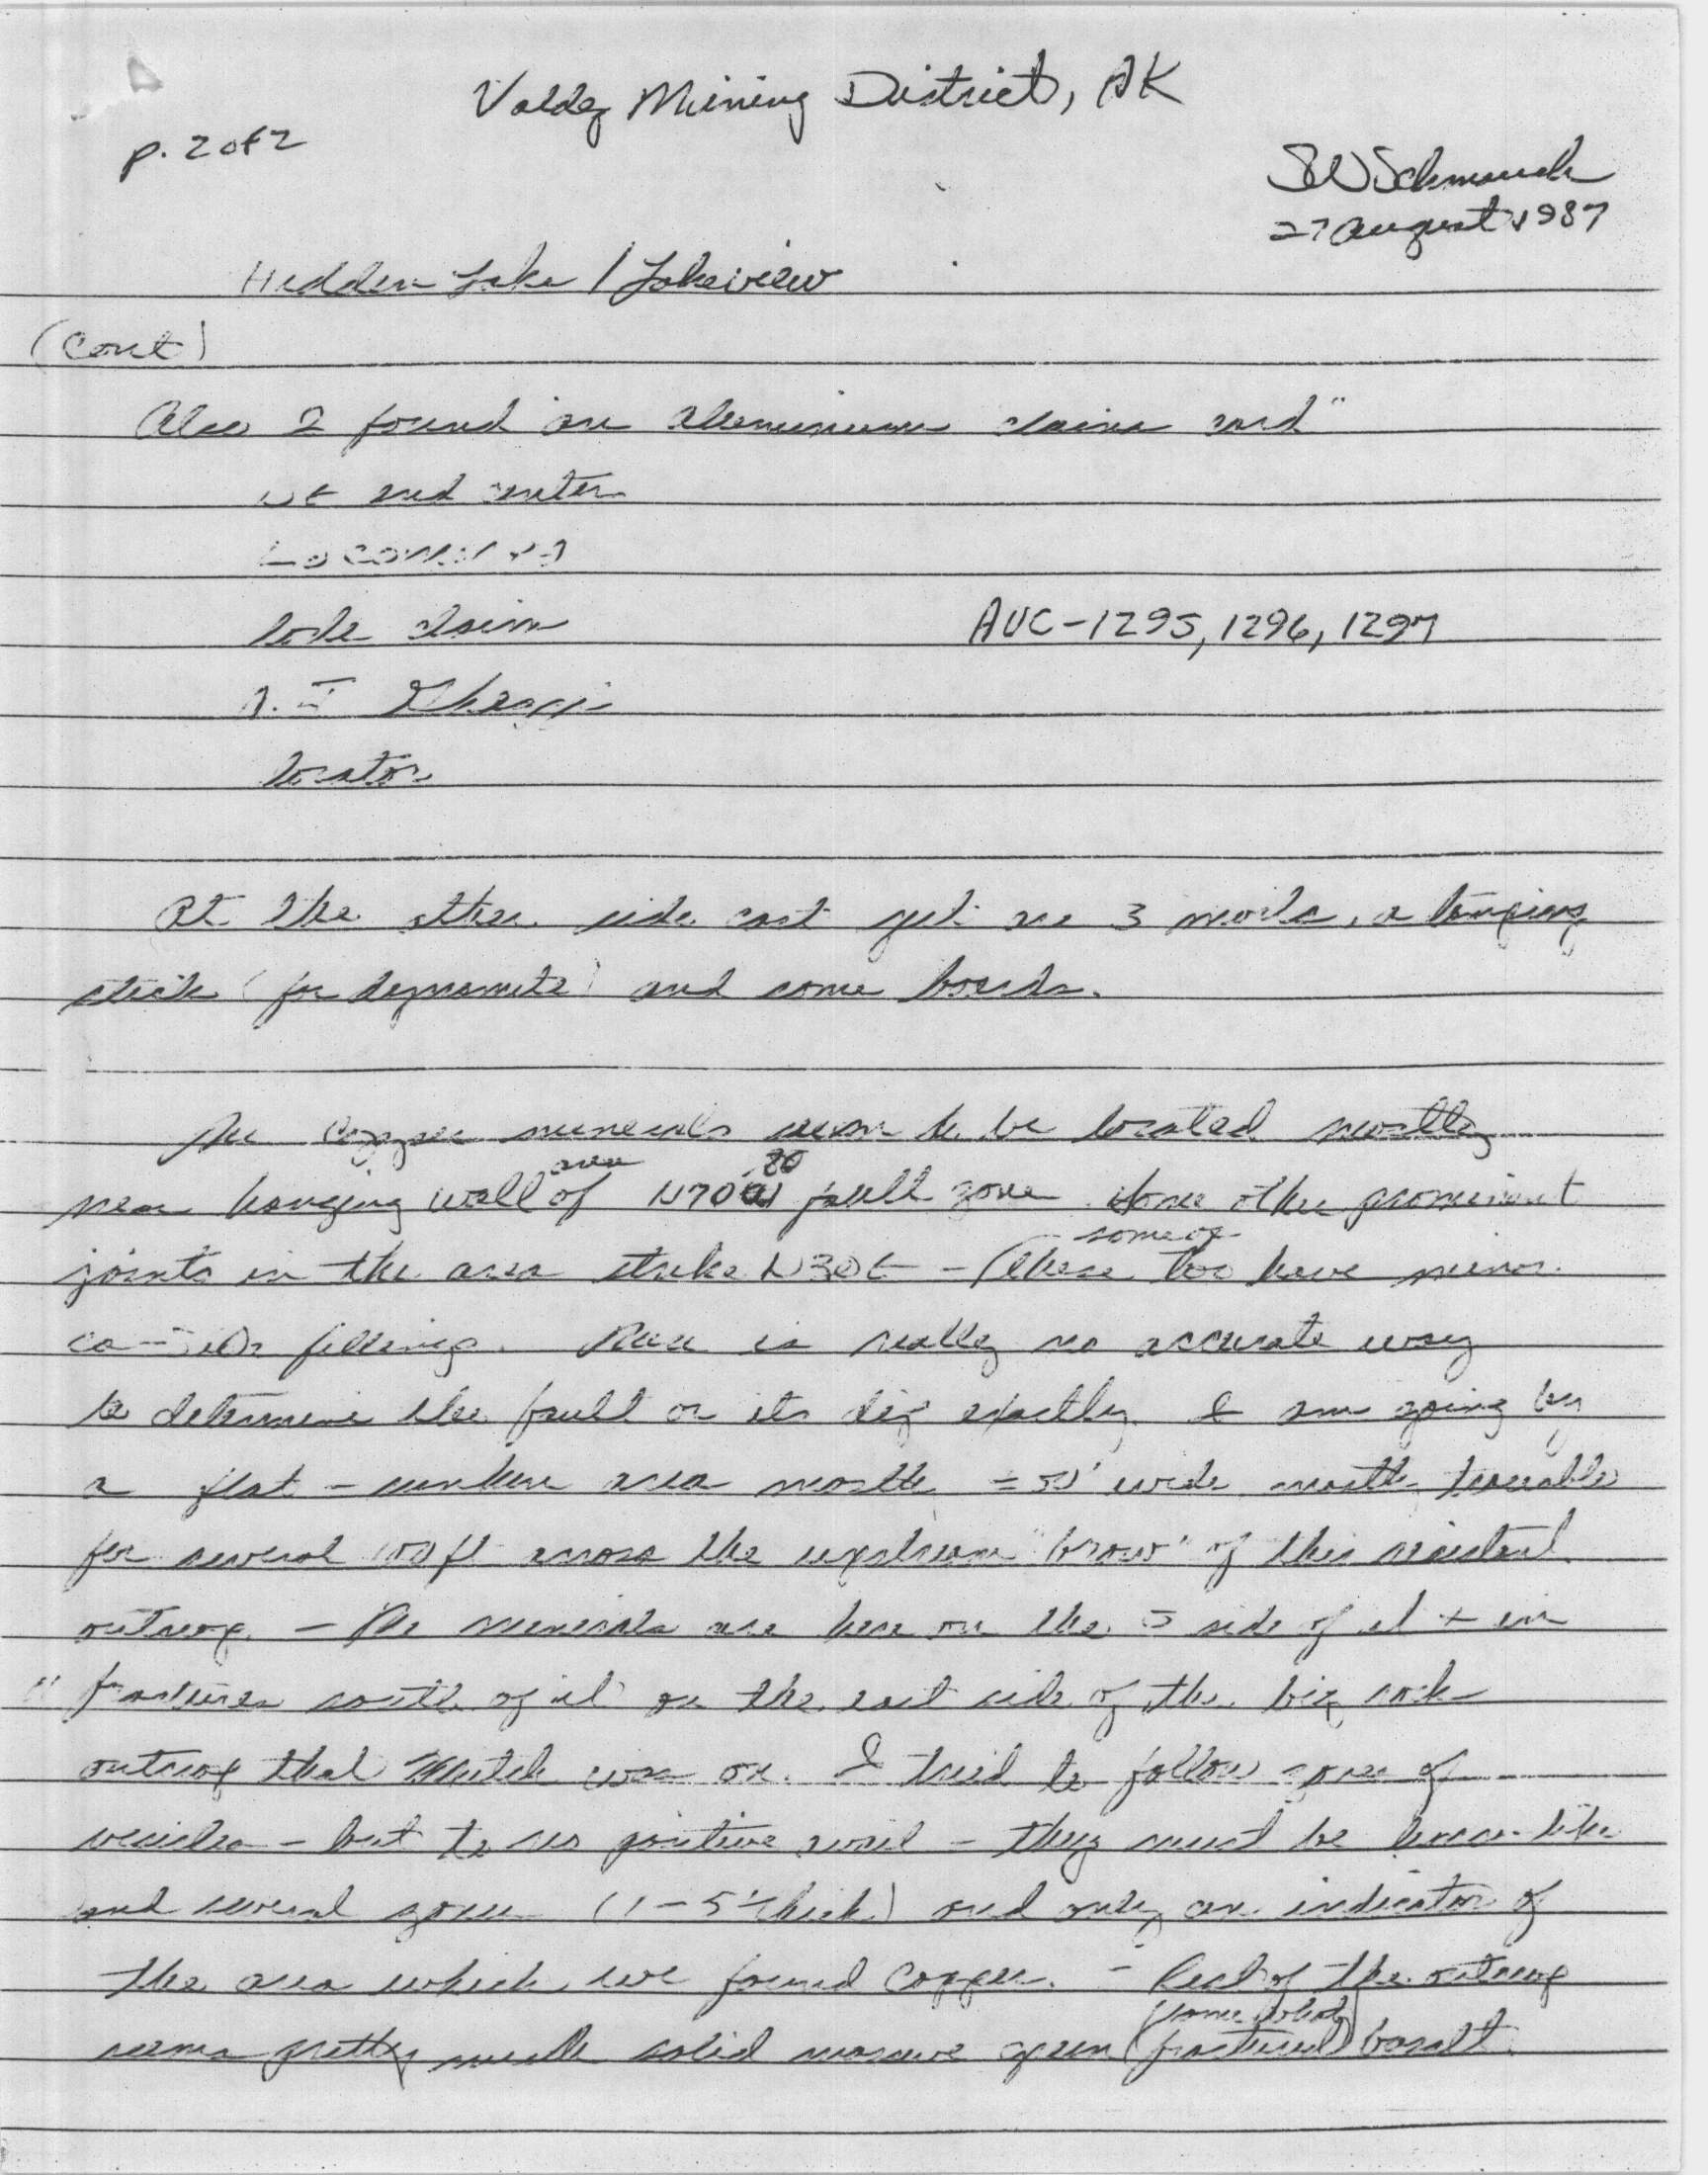 Valdez Mining District, AK
p. 2 of 2
SW Schmauch
27 August 1987
Hidden Lake / Lakeview
(cont)
Also I found an aluminum claim card"
NE end center
lode claim
AUC-1295, 1296, 1297
locator
At the other side cast yet are 3 moils, a tamping
stick (for dynamite) and some boards.
The copper minerals seem to be located mostly
near hanging wall area of N70W 80 fault zone. Some other prominent
joints in the area strike N30E - (some of these too have minor
filling. There is really no accurate way
to determine the fault or its dip exactly. I am going by
a flat - sunken area mostly = 50' wide mostly traceable
for several 100 ft across the upstream "brow" of this resistant
outcrop. - The minerals are here on the S side of it + in
fractures south of it on the east side of the big rock
outcrop that Mitch was on. I tried to follow zones of
vesicles - but to no positive avail - they must be lense-like
and several zones (1-5' thick) and only an indicator of
the area which we found copper. - Rest of the outcrop
seems pretty much solid massive green (somewhat fractured) basalt.